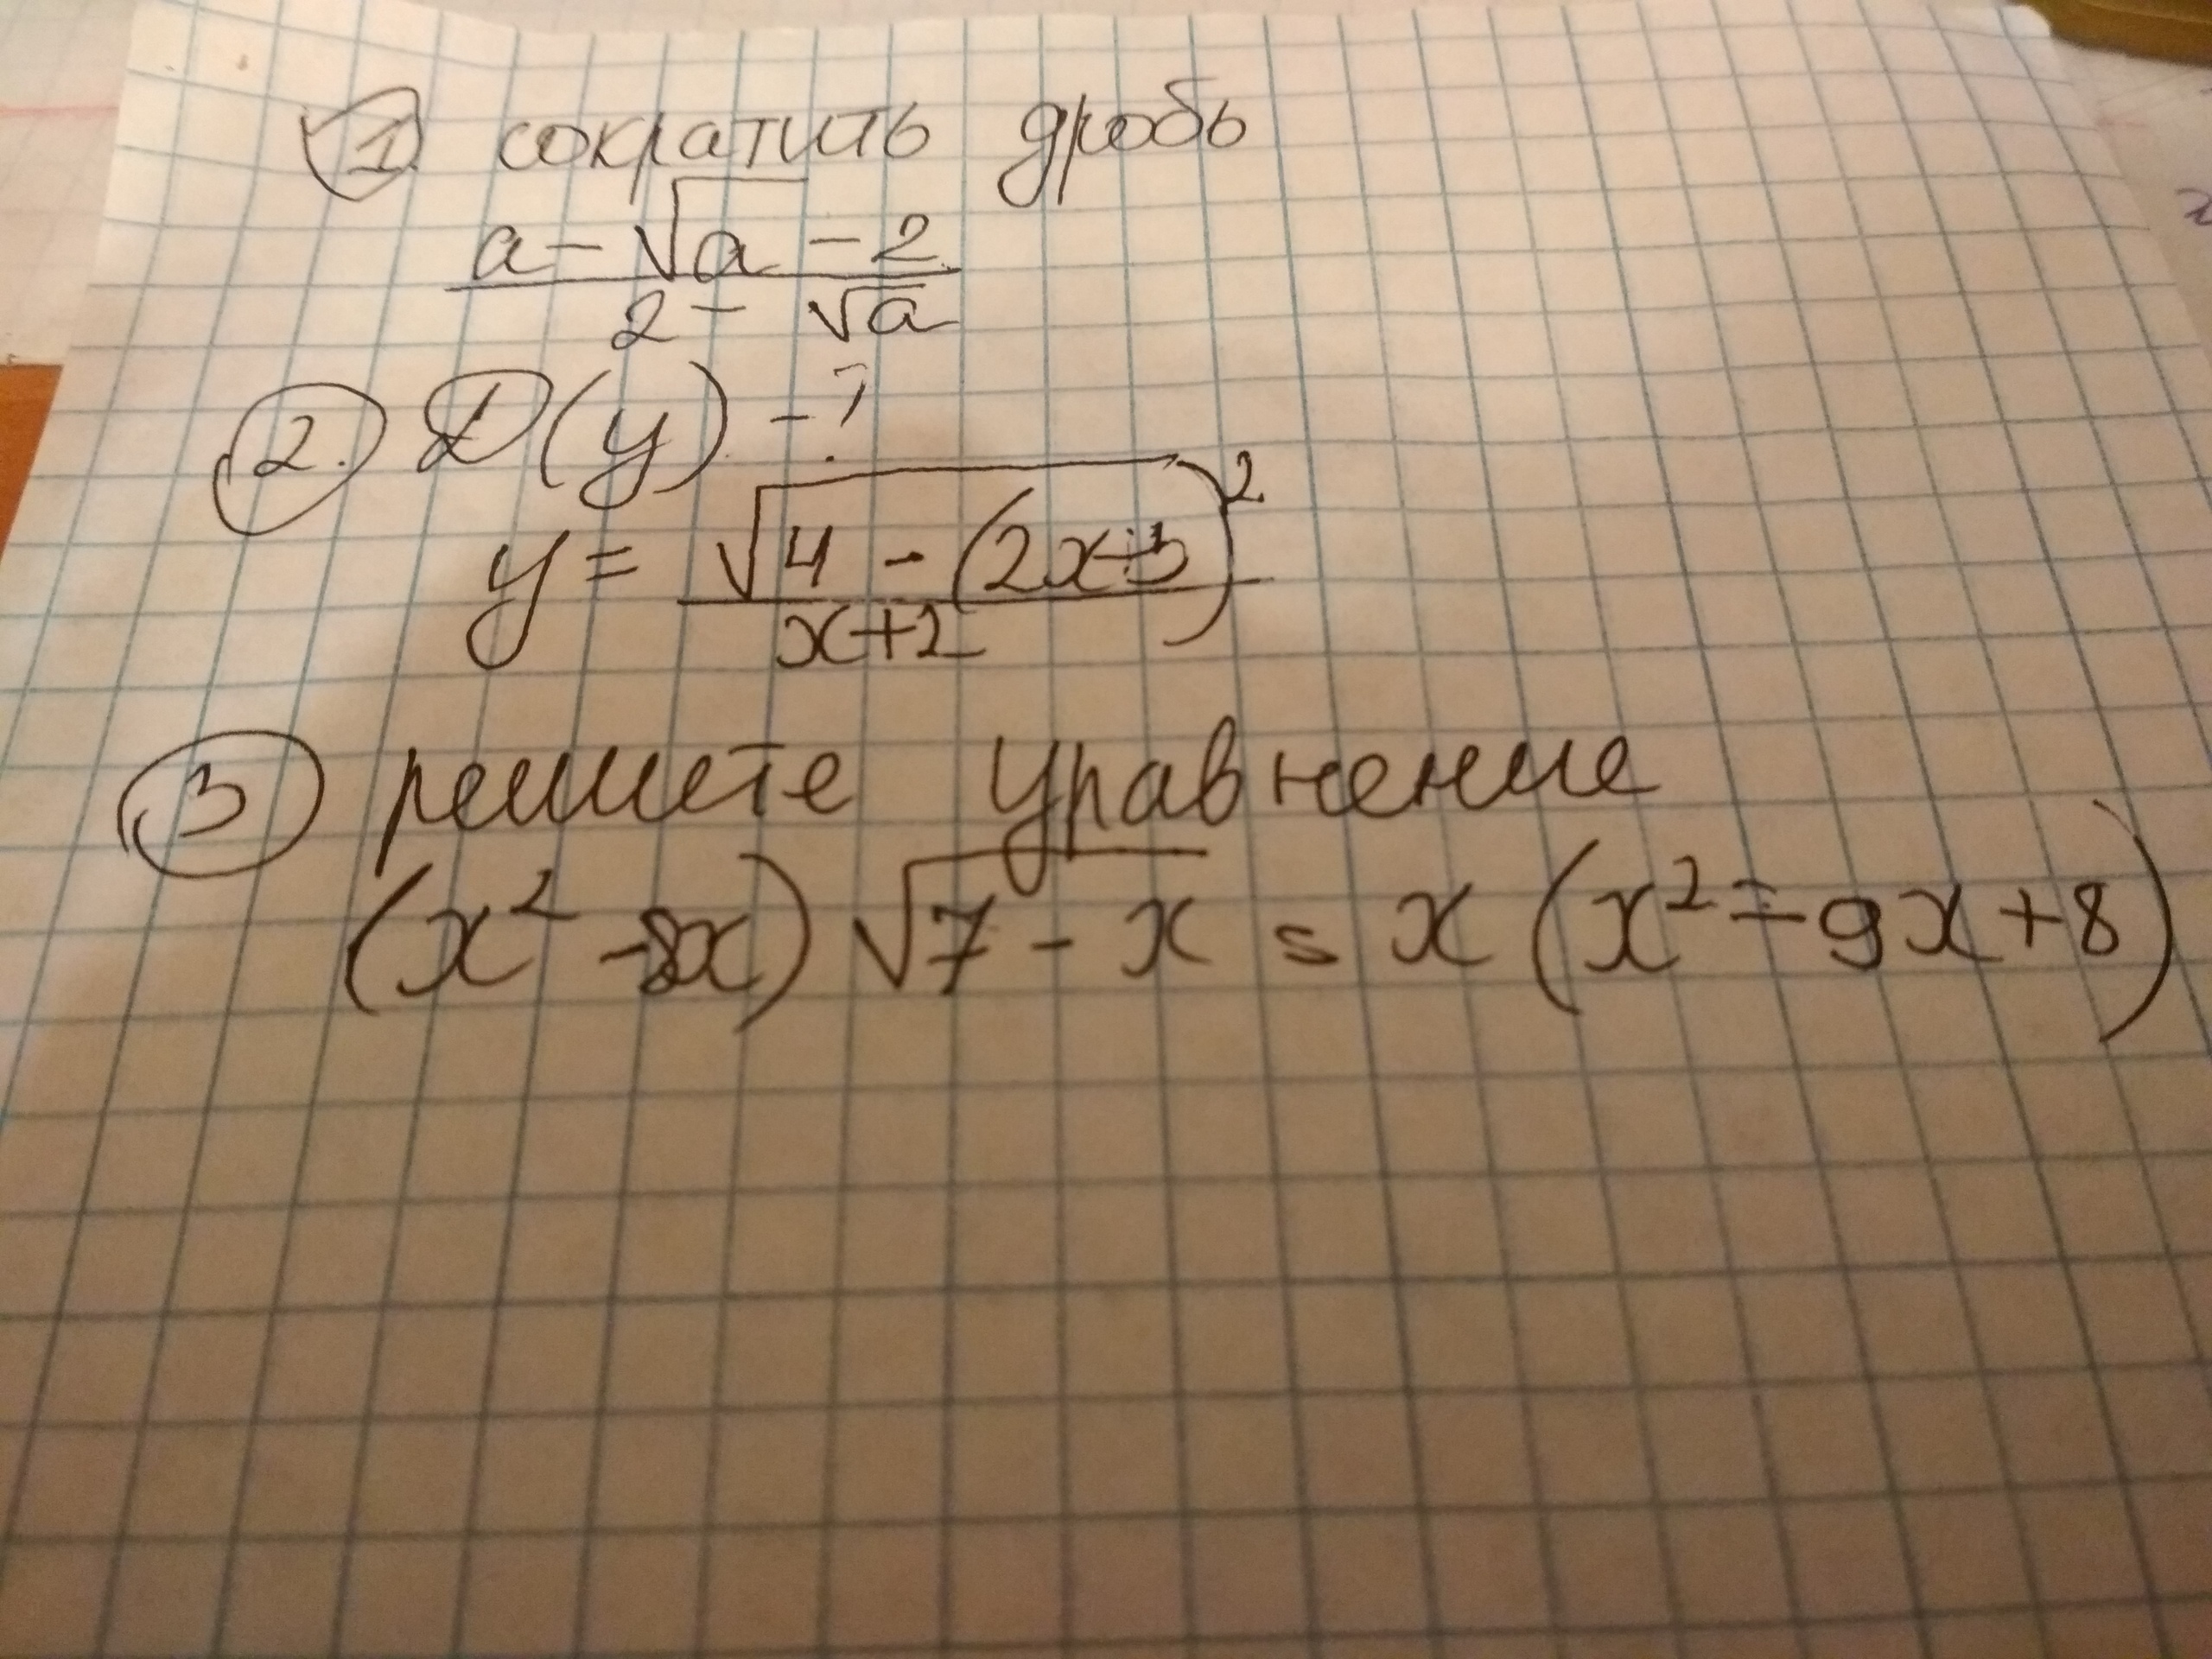 1. сократить дробь
a - √a - 2
2 - √a
2. D(y) - ?
y = √4 - (2x+3)²
x+2
3 решите уравнение
(x² - 8x) √7 - x = x (x² - 9x + 8)